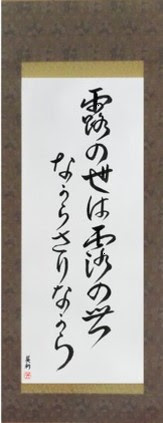 露の世は露の世
ながらさりながら